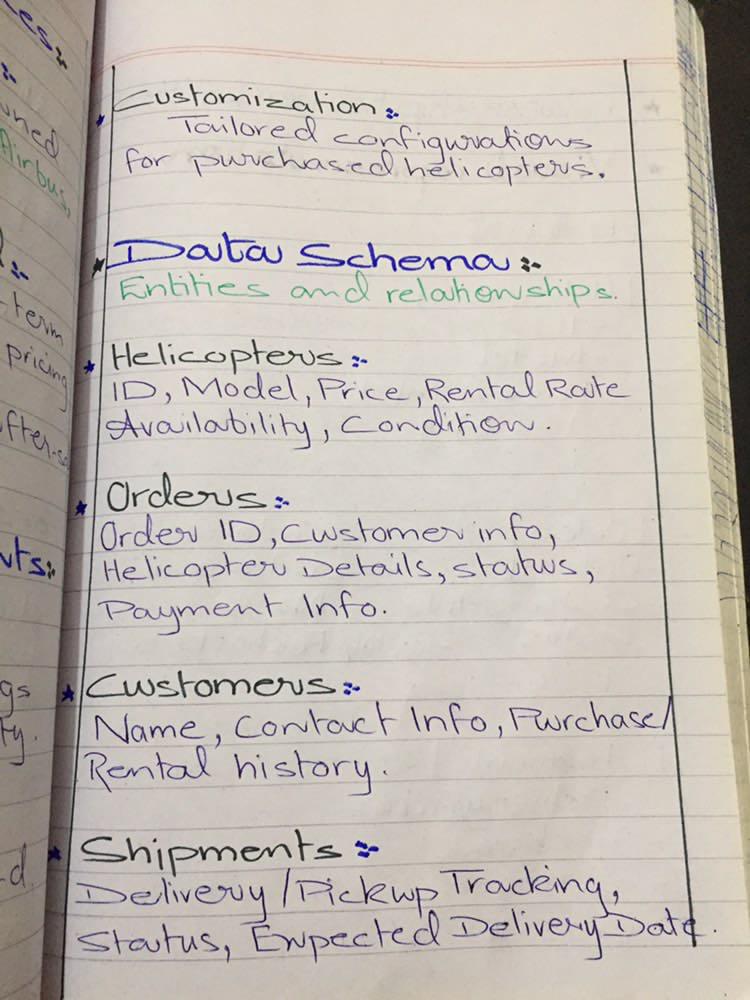 Customization :-
Tailored configurations
for purchased helicopters.
Data Schema :-
Entities and relationships.
Helicopters :-
ID, Model, Price, Rental Rate
Availability, Condition.
Orders :-
Order ID, Customer info,
Helicopter Details, status,
Payment Info.
Customers :-
Name, Contact Info, Purchase/
Rental history.
Shipments :-
Delivery/Pickup Tracking,
Status, Expected Delivery Date.
Airbus,
-term
pricing